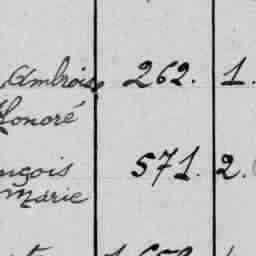 Ambroise 262. 1.
Honoré
nçois 571. 2.
Marie